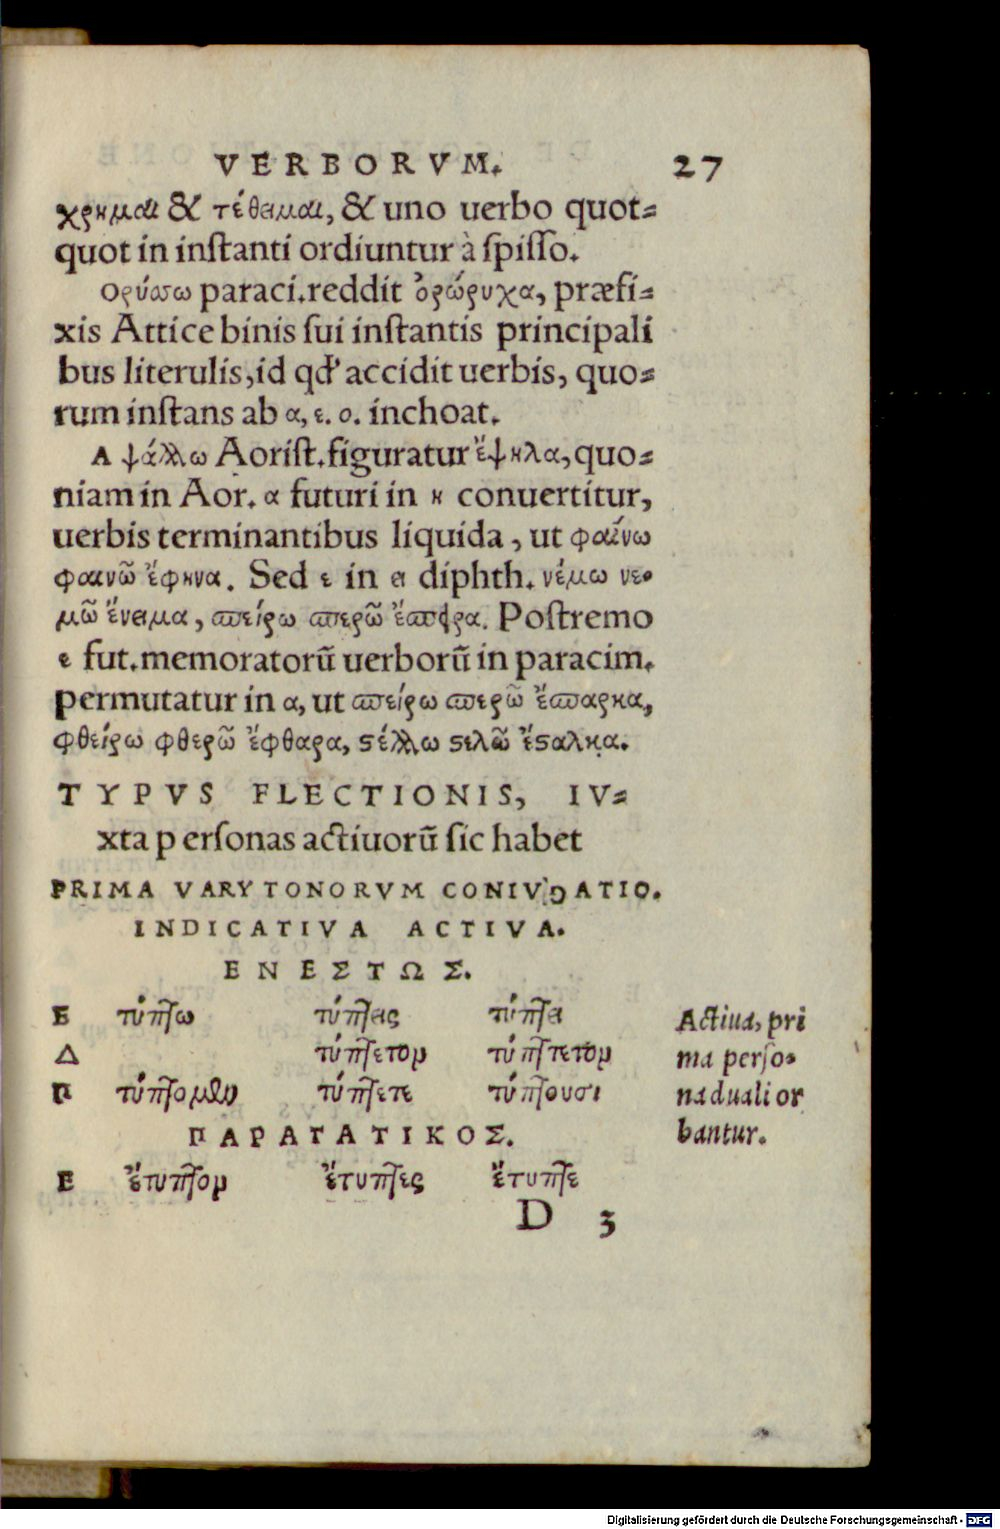 VERBORVM. 27
χρημαι & τέθειμαι, & uno uerbo quot⸗
quot in instanti ordiuntur à spisso.
Ορύσσω paraci. reddit ὀρώρυχα, præfi⸗
xis Attice binis sui instantis principali
bus literulis, id qđ accidit uerbis, quo⸗
rum instans ab α, ε. ο. inchoat.
Α ψάλλω Aorist. figuratur ἔψηλα, quo⸗
niam in Aor. α futuri in η conuertitur,
uerbis terminantibus liquida, ut φαίνω
φαινῶ ἔφηνα. Sed ε in ει diphth. νέμω νε⸗
μῶ ἔνειμα, σπείρω σπερῶ ἔσπειρα. Postremo
ε fut. memoratorū uerborū in paracim.
permutatur in α, ut σπείρω σπερῶ ἔσπαρκα,
φθείρω φθερῶ ἔφθαρα, στέλλω στελῶ ἔσταλκα.
TYPVS FLECTIONIS, IV⸗
xta personas actiuorū sic habet
PRIMA VARYTONORVM CONIVGATIO.
INDICATIVA ACTIVA.
ΕΝΕΣΤΩΣ.
Ε τύπτω τύπτεις τύπτει
Δ τύπτετον τύπτετον
Π τύπτομεν τύπτετε τύπτουσι
Actiua, pri
ma perso⸗
na duali or
bantur.
ΠΑΡΑΤΑΤΙΚΟΣ.
Ε ἔτυπτον ἔτυπτες ἔτυπτε
D 3
Digitalisierung gefördert durch die Deutsche Forschungsgemeinschaft - DFG